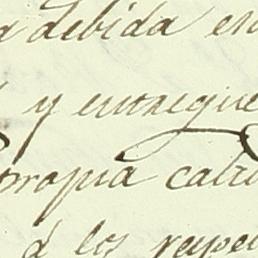 a debida en
y entregue
propia calid
á los respe